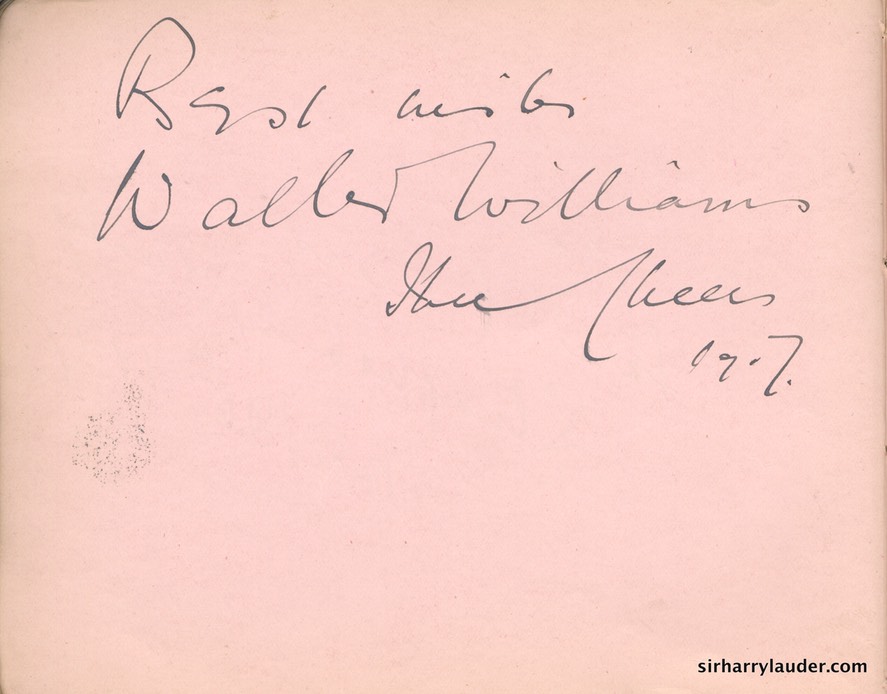 Best wishes
Walter Williams
Three Cheers
1907.
sirharrylauder.com